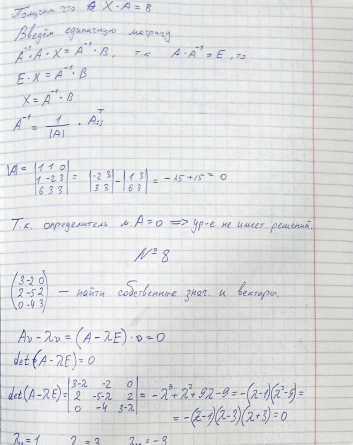 Получим что X · A = B
Введём единичную матрицу
A⁻¹ · A · X = A⁻¹ · B, т.к A · A⁻¹ = E, то
E · X = A⁻¹ · B
X = A⁻¹ · B
A⁻¹ = 1/|A| · Aᵀ
|A| = |1 1 0; 1 -2 3; 6 3 3| = |-2 3; 3 3| - |1 3; 6 3| = -15 + 15 = 0
Т.к. определитель м. A = 0 => ур-е не имеет решений.
№ 8
(3 -2 0; 2 -5 2; 0 -4 3) — найти собственные знач. и векторы
Aυ - λυ = (A - λE) · υ = 0
det(A - λE) = 0
det(A - λE) = |3-λ -2 0; 2 -5-λ 2; 0 -4 3-λ| = -λ³ + λ² + 9λ - 9 = -(λ-1)(λ²-9) =
= -(λ-1)(λ-3)(λ+3) = 0
= 1 = 3 = -3